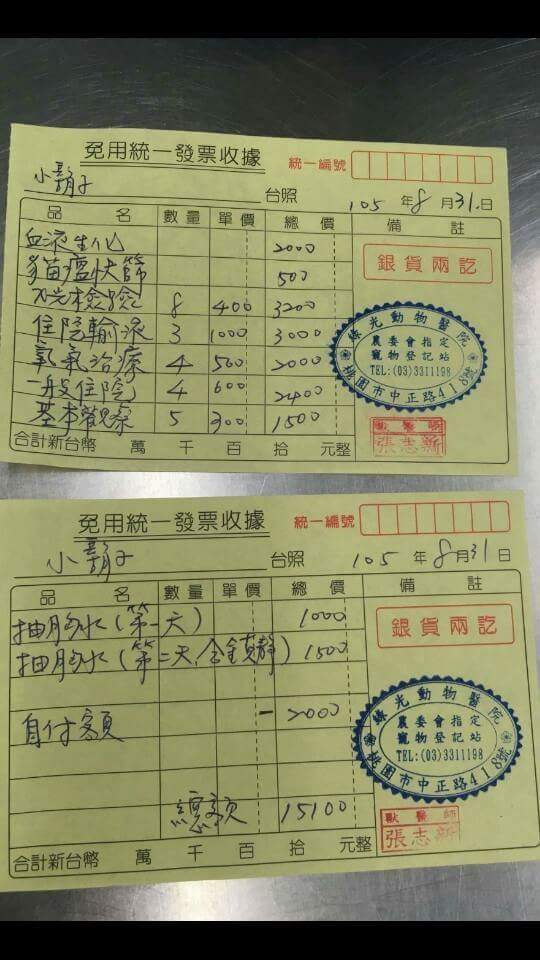 免用統一發票收據
統一編號
小鬍子 台照 105年8月31日
品名 數量 單價 總價 備註
血液生化 2000
貓瘟快篩 500
X光檢驗 8 400 3200
住院輸液 3 1000 3000
氧氣治療 4 500 2000
一般住院 4 600 2400
基本觀察 5 300 1500
合計新台幣 萬 千 百 拾 元整
銀貨兩訖
綠光動物醫院
農委會指定
寵物登記站
TEL:(03)3311198
桃園市中正路418號
獸醫師
張志新
免用統一發票收據
統一編號
小鬍子 台照 105年8月31日
品名 數量 單價 總價 備註
抽胸水(第一天) 1000
抽胸水(第二天,含鎮靜) 1500
自付額 -2000
總額 15100
合計新台幣 萬 千 百 拾 元整
銀貨兩訖
綠光動物醫院
農委會指定
寵物登記站
TEL:(03)3311198
桃園市中正路418號
獸醫師
張志新